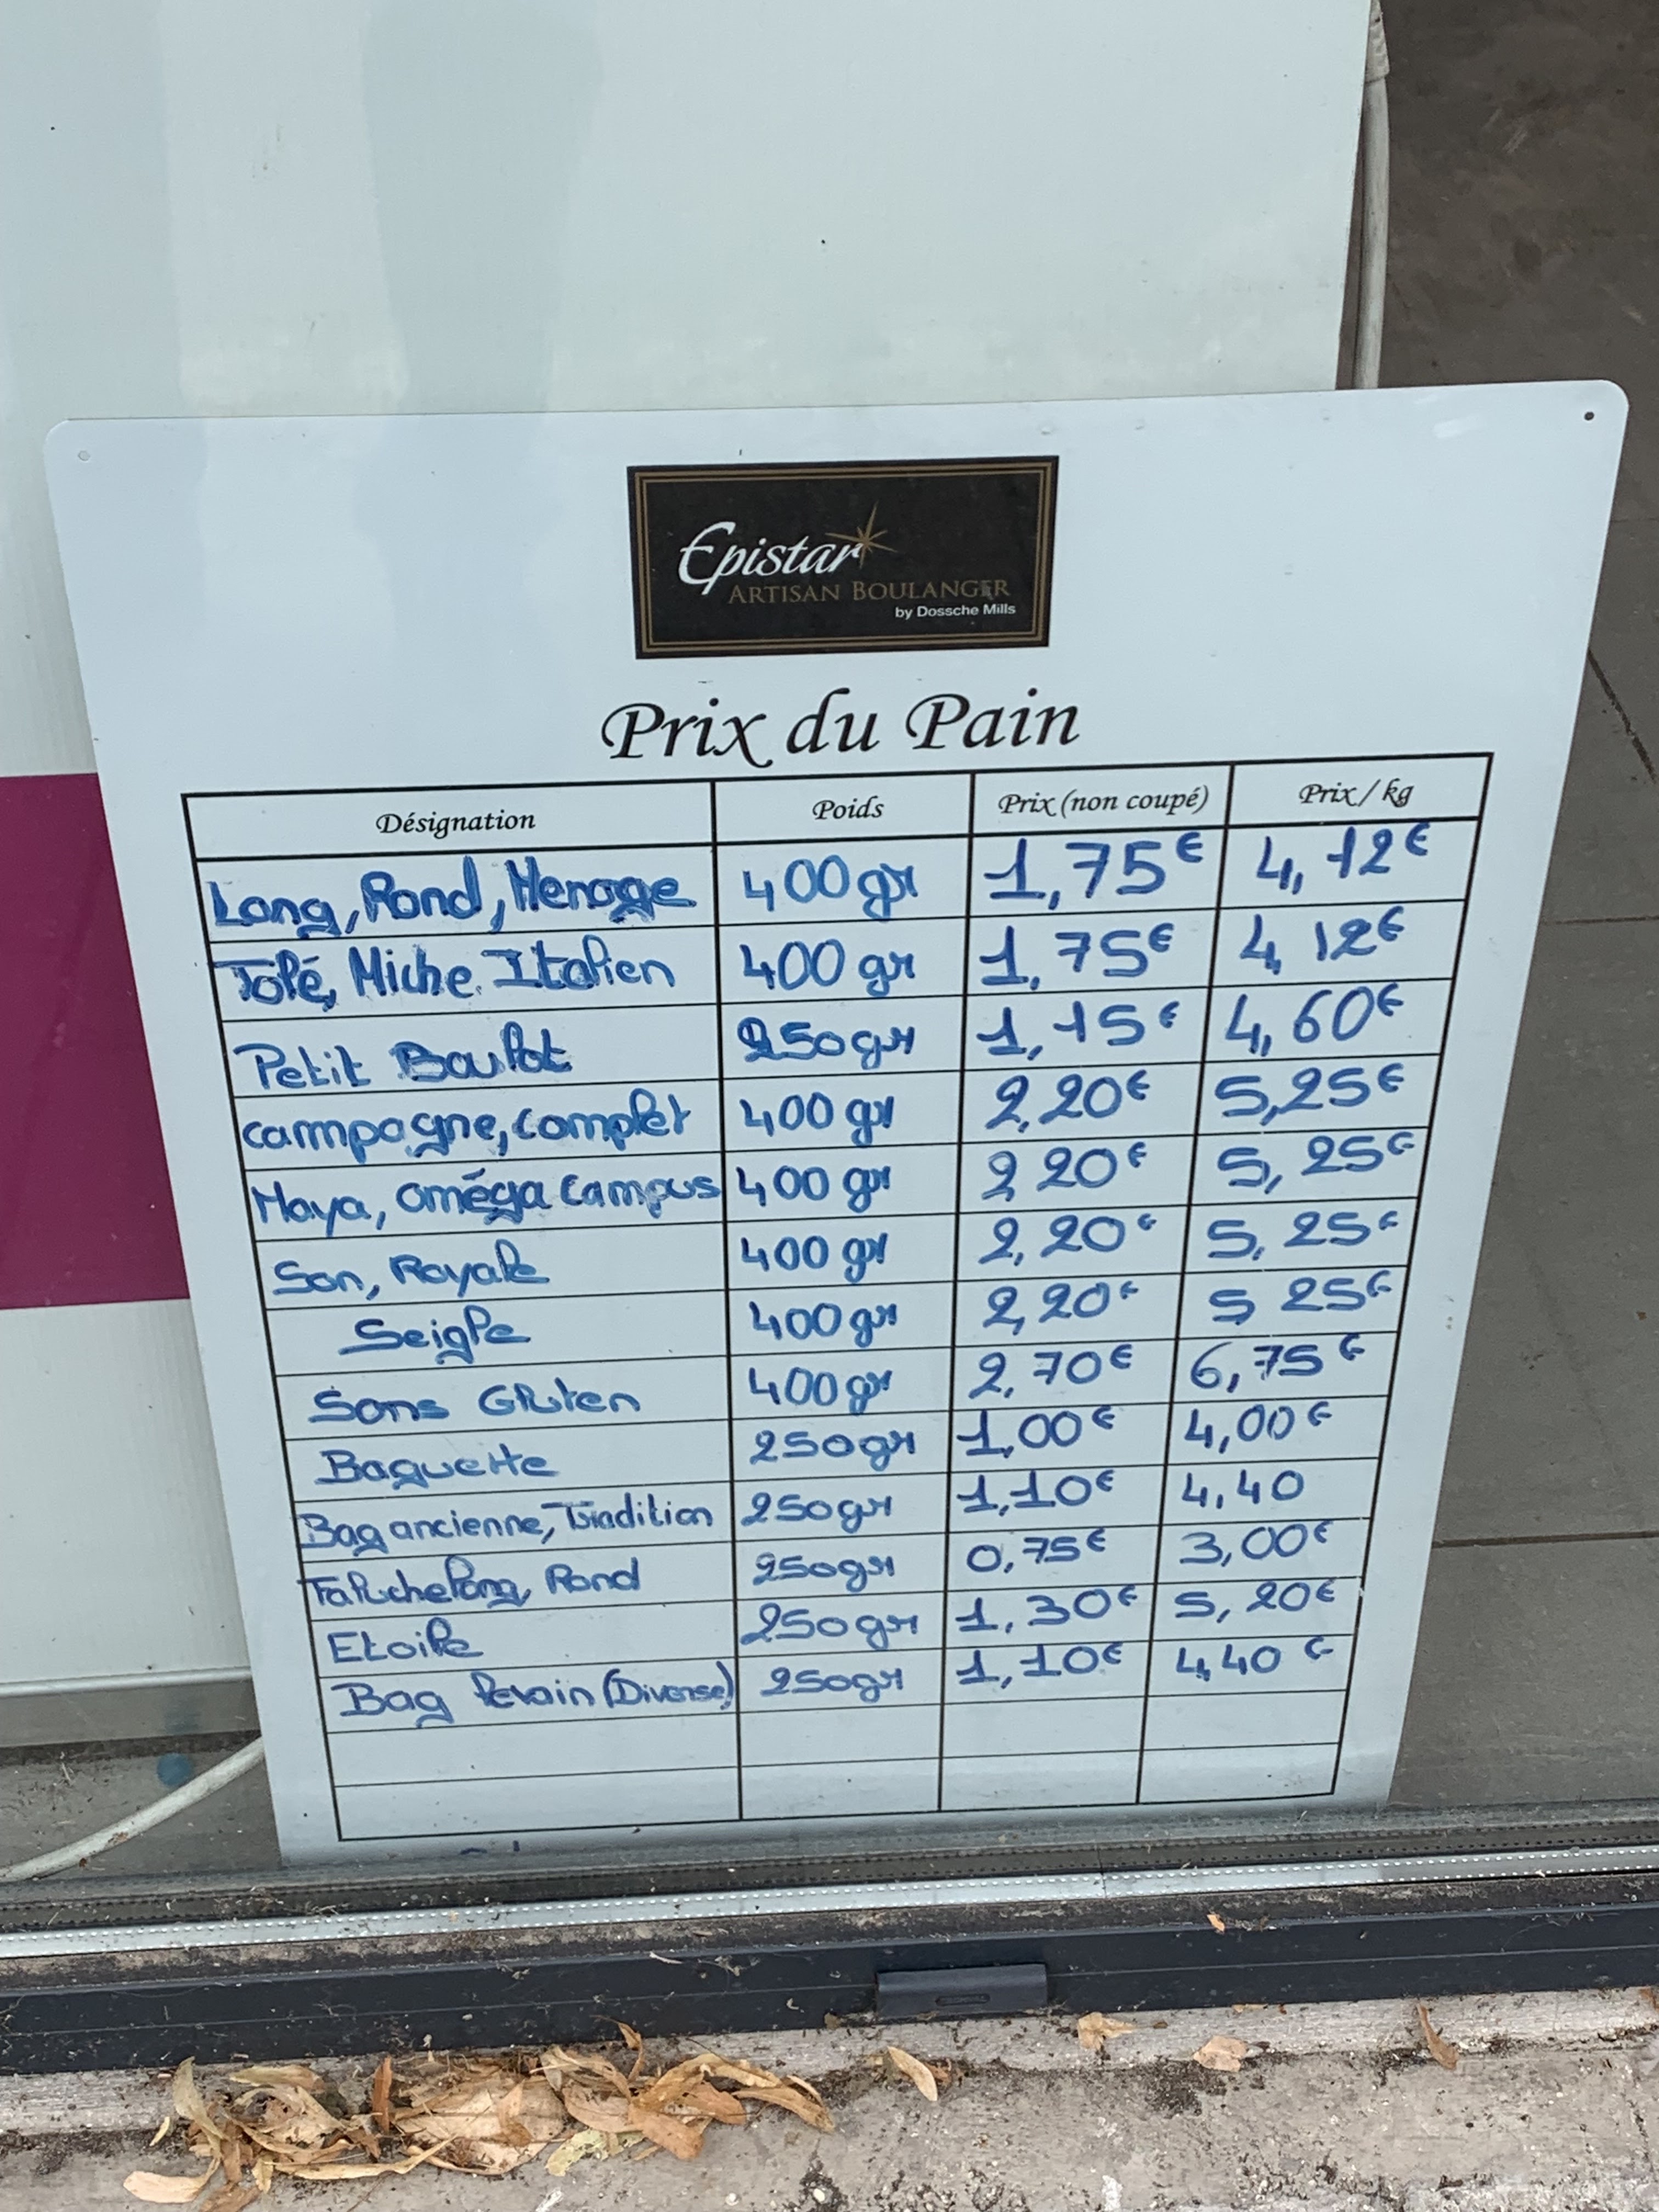 Epistar
ARTISAN BOULANGER
by Dossche Mills
Prix du Pain
Désignation Poids Prix (non coupé) Prix / kg
Long, Rond, Menage 400 gr 1,75€ 4,12€
Tolé, Miche Italien 400 gr 1,75€ 4,12€
Petit Boulot 250gr 1,15€ 4,60€
campagne, complet 400 gr 2,20€ 5,25€
Maya, oméga campus 400 gr 2,20€ 5,25€
Son, Royale 400 gr 2,20€ 5,25€
Seigle 400 gr 2,20€ 5,25€
Sans Gluten 400 gr 2,70€ 6,75€
Baguette 250gr 1,00€ 4,00€
Bag ancienne, Tradition 250gr 1,10€ 4,40
Faluche long, Rond 250gr 0,75€ 3,00€
Etoile 250gr 1,30€ 5,20€
Bag levain (Diverse) 250gr 1,10€ 4,40€